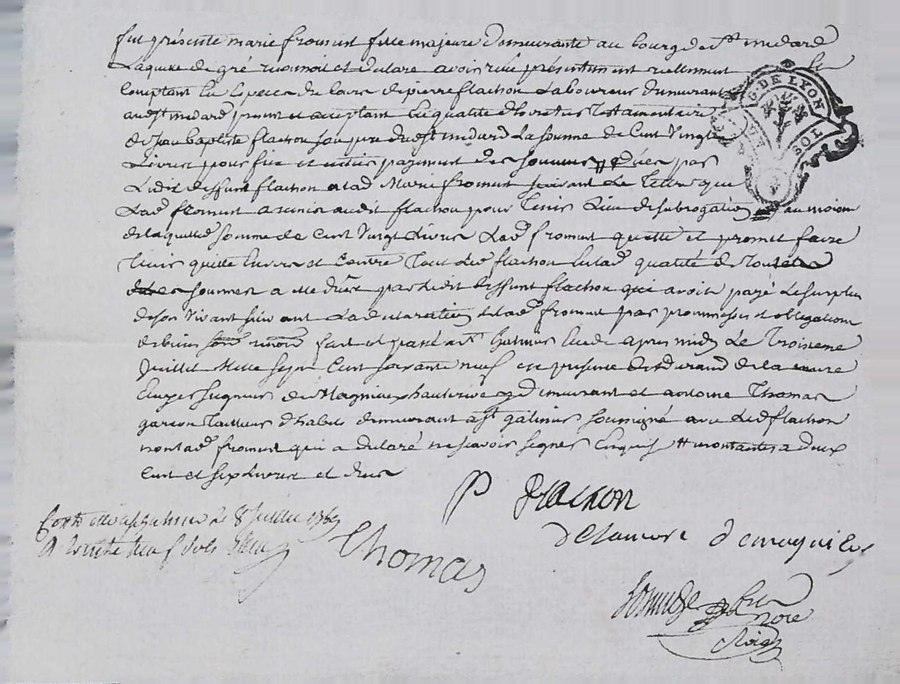 fut présente marie froment fille majeure demeurante au bourg de st medard
Laquelle de gré reconnoit et declare avoir reçu présentement reellement
comptant En Especes de cours de pierre flachon Laboureur demeurant
audt st medard present et acceptant En qualité d'heretier Testamentaire
de Jean baptiste flachon son pere dudt st medard La somme de Cent Vingt
Livres pour fin et entier payement des sommes # dües par
Ledit deffunt flachon a lad Marie froment suivant Le Titre que
Lad froment a remis audit flachon pour Tenir Lieu de subrogation au moien
de laquelle somme de Cent Vingt Livres Lad froment quitte et promet faire
Tenir quitte Envers et Contre Tout Led flachon En lad qualité de Toutes
sommes a elle dües par Ledit deffunt flachon qui avoit payé Le surplus
de son Vivant suivant La declaration de lad froment par promesses et obligations
de biens fait et passé a st galmier Etude apres midy Le Troisieme
Juillet Mille sept Cent soixante neuf en presence de de la
Ecuyer seigneur de Magnieu hauterive y demeurant et antoine Thomas
garcon Tailleur d'habits demeurant a st galmier soussigné avec Led flachon
non lad froment qui a declaré ne scavoir signer Enquis # montantes a deux
Cent et six Livres et dix
P flachon
Contrôlé a st galmier le 8 Juillet 1769
R treize neuf sols
Thomas
G. DE LYON
SOL
nore
Roial